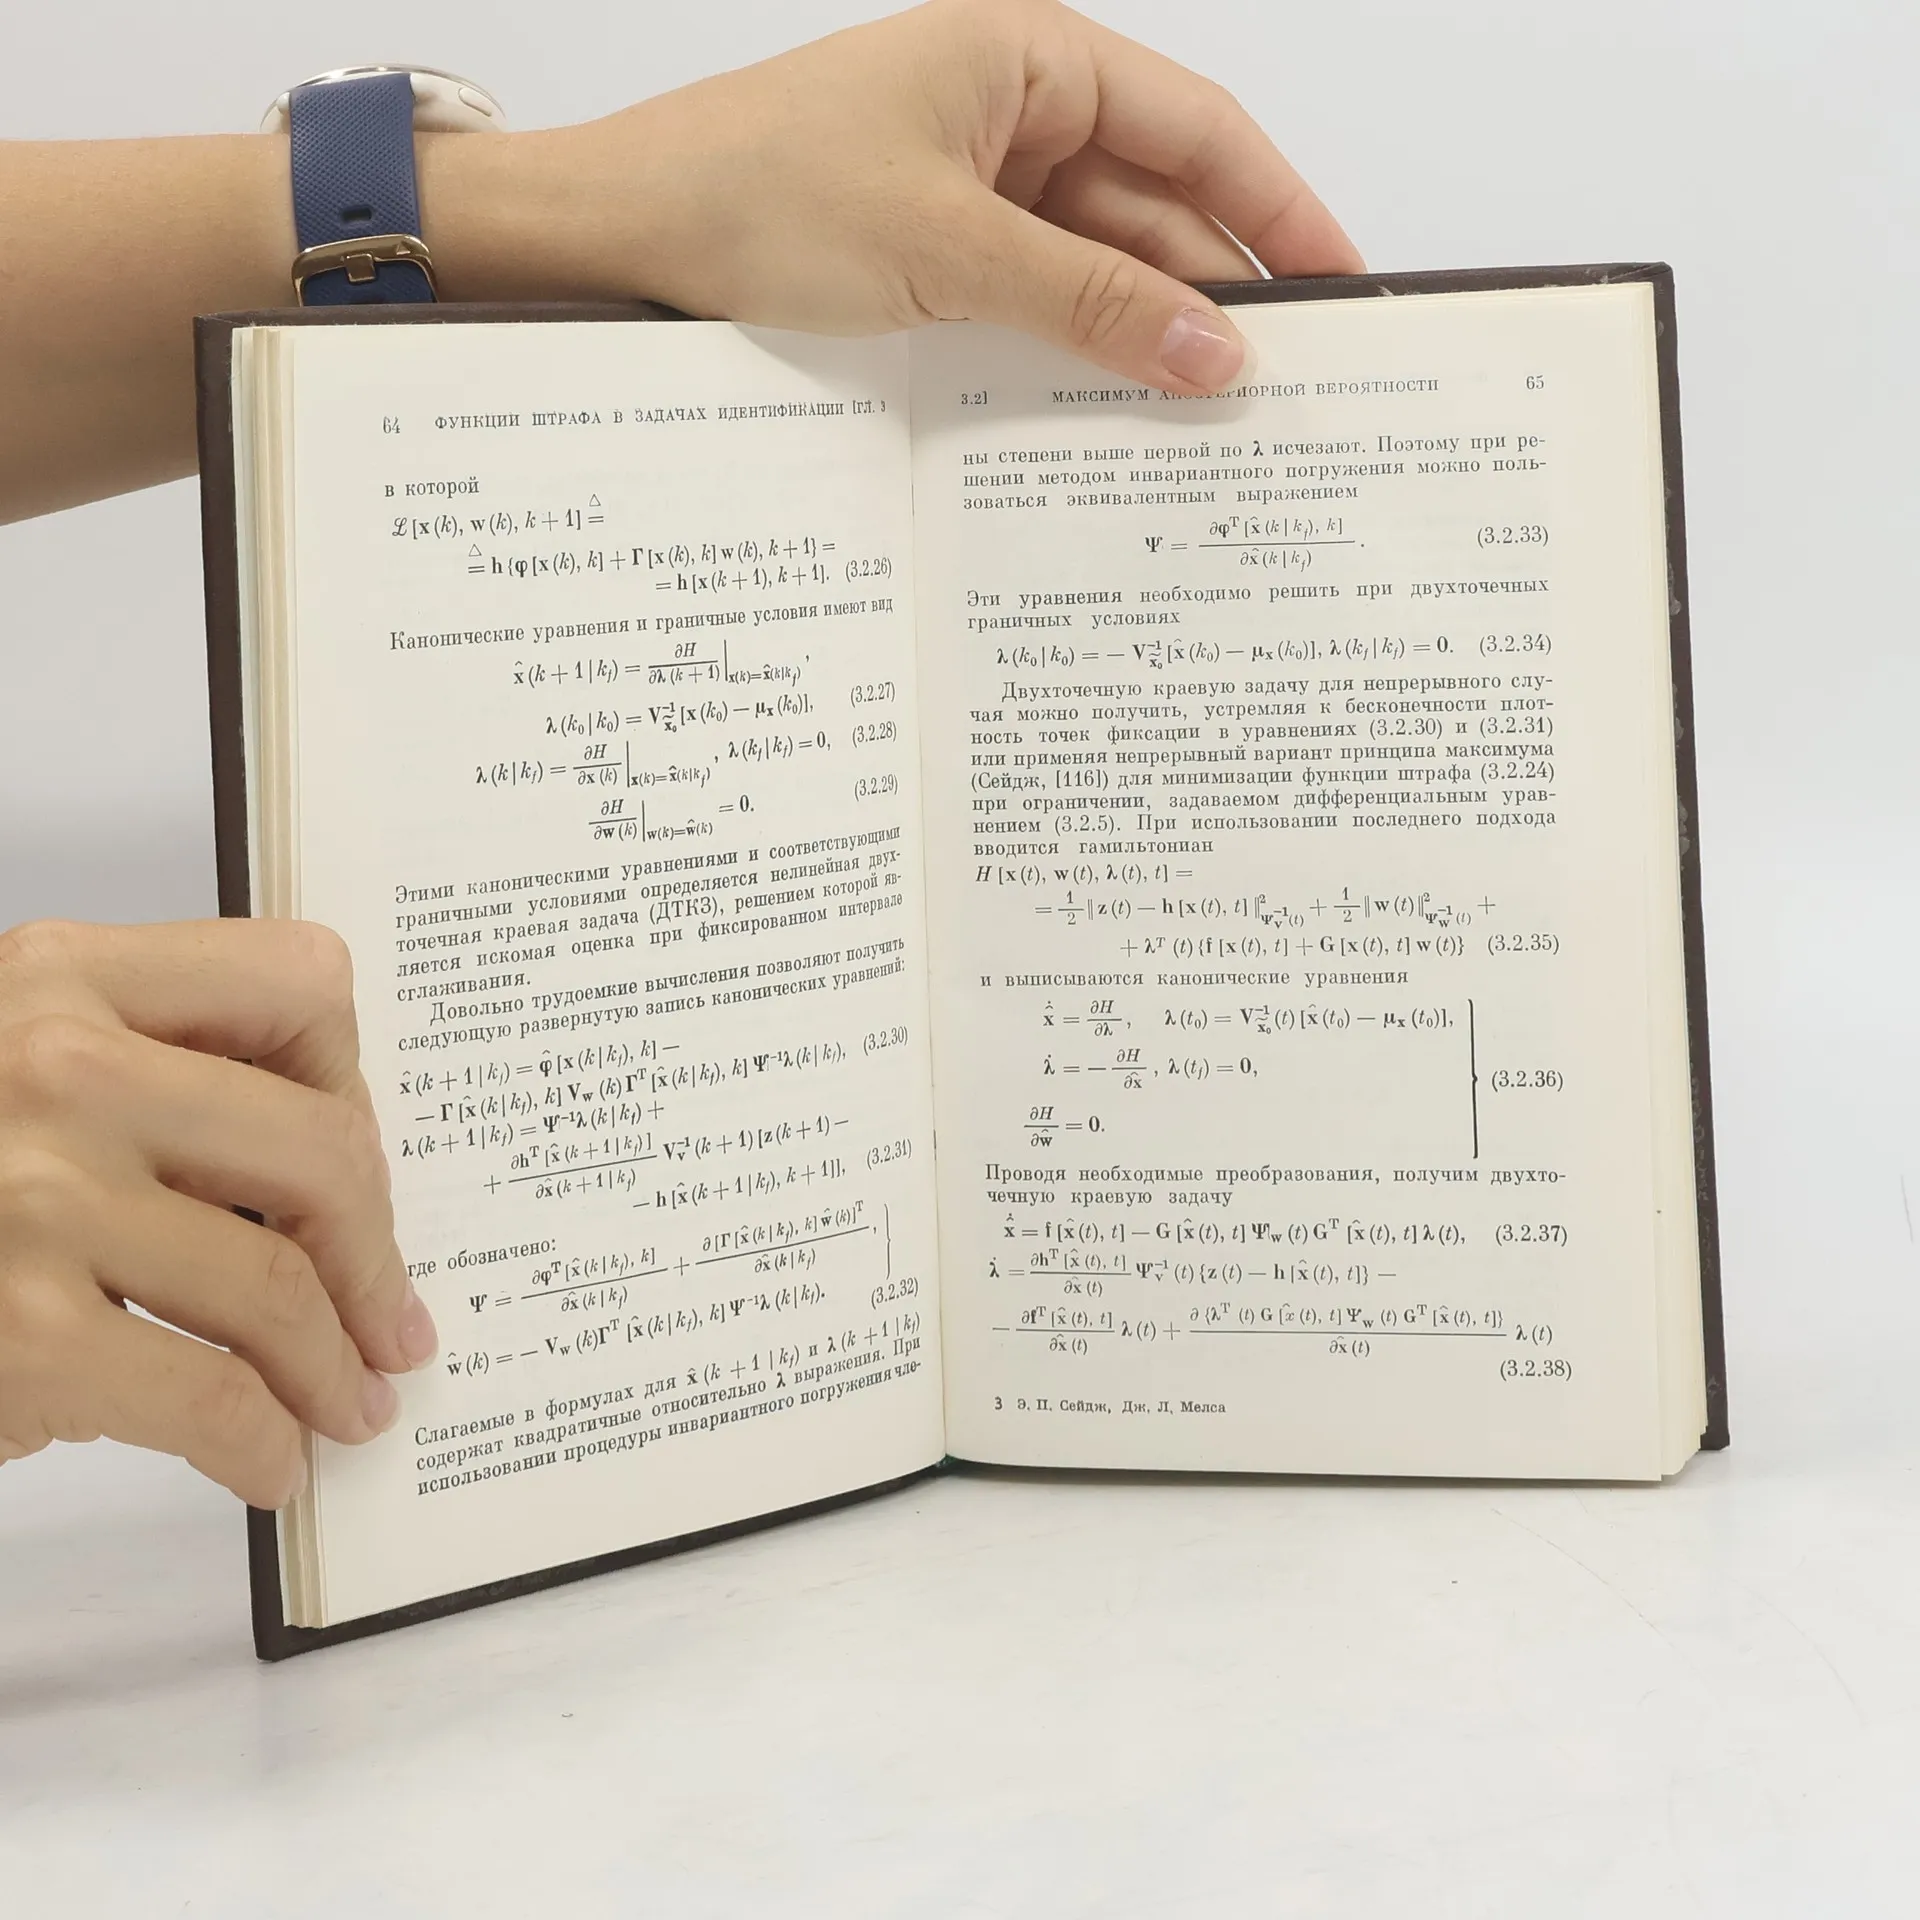 64 ФУНКЦИИ ШТРАФА В ЗАДАЧАХ ИДЕНТИФИКАЦИИ [ГЛ. 3
в которой
ℒ [x (k), w (k), k + 1] ≜
≜ h {φ [x (k), k] + Γ [x (k), k] w (k), k + 1} =
= h [x (k + 1), k + 1]. (3.2.26)
Канонические уравнения и граничные условия имеют вид
x̂ (k + 1 | k_f) = ∂H / ∂λ (k + 1) |_{x(k)=x̂(k|k_f)},
λ (k₀ | k₀) = V_{x̃₀}^{-1} [x (k₀) − μ_x (k₀)], (3.2.27)
λ (k | k_f) = ∂H / ∂x (k) |_{x(k)=x̂(k|k_f)}, λ (k_f | k_f) = 0, (3.2.28)
∂H / ∂w (k) |_{w(k)=ŵ(k)} = 0. (3.2.29)
Этими каноническими уравнениями и соответствующими
граничными условиями определяется нелинейная двух-
точечная краевая задача (ДТКЗ), решением которой яв-
ляется искомая оценка при фиксированном интервале
сглаживания.
Довольно трудоемкие вычисления позволяют получить
следующую развернутую запись канонических уравнений:
x̂ (k + 1 | k_f) = φ̂ [x (k | k_f), k] −
− Γ [x̂ (k | k_f), k] V_w (k) Γᵀ [x̂ (k | k_f), k] Ψ⁻¹λ (k | k_f), (3.2.30)
λ (k + 1 | k_f) = Ψ⁻¹λ (k | k_f) +
+ ∂hᵀ [x̂ (k + 1 | k_f)] / ∂x̂ (k + 1 | k_f) V_v⁻¹ (k + 1) [z (k + 1) −
− h [x̂ (k + 1 | k_f), k + 1]], (3.2.31)
где обозначено:
Ψ = ∂φᵀ [x̂ (k | k_f), k] / ∂x̂ (k | k_f) + ∂ [Γ [x̂ (k | k_f), k] ŵ (k)]ᵀ / ∂x̂ (k | k_f), }
ŵ (k) = − V_w (k) Γᵀ [x̂ (k | k_f), k] Ψ⁻¹λ (k | k_f). (3.2.32)
Слагаемые в формулах для x̂ (k + 1 | k_f) и λ (k + 1 | k_f)
содержат квадратичные относительно λ выражения. При
использовании процедуры инвариантного погружения чле-
3.2] МАКСИМУМ АПОСТЕРИОРНОЙ ВЕРОЯТНОСТИ 65
ны степени выше первой по λ исчезают. Поэтому при ре-
шении методом инвариантного погружения можно поль-
зоваться эквивалентным выражением
Ψ = ∂φᵀ [x̂ (k | k_f), k] / ∂x̂ (k | k_f). (3.2.33)
Эти уравнения необходимо решить при двухточечных
граничных условиях
λ (k₀ | k₀) = − V_{x̃₀}^{-1} [x̂ (k₀) − μ_x (k₀)], λ (k_f | k_f) = 0. (3.2.34)
Двухточечную краевую задачу для непрерывного слу-
чая можно получить, устремляя к бесконечности плот-
ность точек фиксации в уравнениях (3.2.30) и (3.2.31)
или применяя непрерывный вариант принципа максимума
(Сейдж, [116]) для минимизации функции штрафа (3.2.24)
при ограничении, задаваемом дифференциальным урав-
нением (3.2.5). При использовании последнего подхода
вводится гамильтониан
H [x (t), w (t), λ (t), t] =
= 1/2 ‖ z (t) − h [x (t), t] ‖²_{Ψ_v⁻¹(t)} + 1/2 ‖ w (t) ‖²_{Ψ_w⁻¹(t)} +
+ λᵀ (t) {f [x (t), t] + G [x (t), t] w (t)} (3.2.35)
и выписываются канонические уравнения
x̂̇ = ∂H / ∂λ, λ (t₀) = V_{x̃₀}^{-1} (t) [x̂ (t₀) − μ_x (t₀)],
λ̇ = − ∂H / ∂x̂, λ (t_f) = 0, } (3.2.36)
∂H / ∂ŵ = 0.
Проводя необходимые преобразования, получим двухто-
чечную краевую задачу
x̂̇ = f [x̂ (t), t] − G [x̂ (t), t] Ψ_w (t) Gᵀ [x̂ (t), t] λ (t), (3.2.37)
λ̇ = ∂hᵀ [x̂ (t), t] / ∂x̂ (t) Ψ_v⁻¹ (t) {z (t) − h [x̂ (t), t]} −
− ∂fᵀ [x̂ (t), t] / ∂x̂ (t) λ (t) + ∂ {λᵀ (t) G [x̂ (t), t] Ψ_w (t) Gᵀ [x̂ (t), t]} / ∂x̂ (t) λ (t)
(3.2.38)
3 Э. П. Сейдж, Дж. Л. Мелса